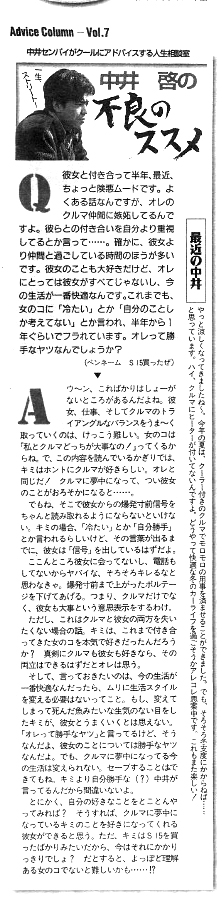 Advice Column – Vol.7
中井センパイがクールにアドバイスする人生相談室
一生
ストリート!
中井 啓の
不良の
ススメ
Q
彼女と付き合って半年、最近、
ちょっと険悪ムードです。よ
くある話なんですが、オレの
クルマ仲間に嫉妬してるんで
すよ。彼らとの付き合いを自分より重視
してるとか言って……。確かに、彼女よ
り仲間と過ごしている時間のほうが多い
です。彼女のことも大好きだけど、オレ
にとっては彼女がすべてじゃないし、今
の生活が一番快適なんです。これまでも、
女のコに「冷たい」とか「自分のことし
か考えてない」とか言われ、半年から1
年ぐらいでフラれています。オレって勝
手なヤツなんでしょうか?
(ペンネーム S15買ったぜ)
A
ウ〜ン、こればかりはしょーが
ないところがあるんだよね。彼
女、仕事、そしてクルマのトラ
イアングルなバランスをうま〜く
取っていくのは、けっこう難しい。女のコは
「私とクルマどっちが大事なの!」ってくるか
らね。で、この内容を読んでいるかぎりでは、
キミはホントにクルマが好きらしい。オレと
同じだ! クルマに夢中になって、つい彼女
のことがおろそかになると……。
でもね、そこで彼女からの爆発寸前信号を
ちゃんと読み取れるようにならないといけな
い。キミの場合、「冷たい」とか「自分勝手」
とか言われるらしいけど、その言葉が出るま
でに、彼女は「信号」を出しているはずだよ。
ここんところ彼女に会ってないし、電話も
してないからヤバイな、そろそろキレるなと
思わなきゃ。爆発寸前まで上がったボルテー
ジを下げてあげる。つまり、クルマだけでな
く、彼女も大事という意思表示をするわけ。
ただし、これはクルマと彼女の両方を失い
たくない場合の話。キミは、これまで付き合
ってきた女のコを本気で好きだったんだろう
か? 真剣にクルマも彼女も好きなら、その
両立はできるはずだとオレは思う。
そして、言っておきたいのは、今の生活が
一番快適なんだったら、ムリに生活スタイル
を変える必要はないってこと。もし、変えて
しまって死んだ魚みたいな生気のない目をし
たキミが、彼女とうまくいくとは思えない。
「オレって勝手なヤツ」と言ってるけど、そう
なんだよ、彼女のことについては勝手なヤツ
なんだよ。でも、クルマに夢中になってる今
の生活は変えられない、セーブすることはで
きてもね。キミより自分勝手な(?)中井が
言ってるんだから間違いないよ。
とにかく、自分の好きなことをとことんや
ってみれば? そうすれば、クルマに夢中に
なっているキミのことを好きになってくれる
彼女ができると思う。ただ、キミはS15を買
ったばかりみたいだから、今はそれにかかり
っきりでしょ? だとすると、よっぽど理解
ある女のコでないと難しいかも……!?
最近の中井
やっと涼しくなってきましたねぇ。今年の夏は、クーラー付きのクルマでモロモロの用事を済ませることができました。でも、そろそろ冬支度にかからねば……
と思っています。ハイ、クルマにヒーターが付いてないんですよ。どうやって快適な冬のカーライフを過ごそうかアレコレ思案中です。これもまた楽しい!